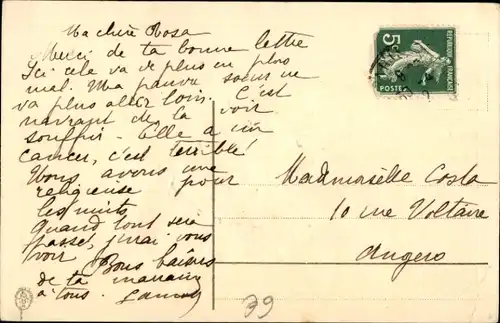 Ma chère Rosa
Merci de ta bonne lettre
Ici cela va de plus en plus
mal. Ma pauvre soeur ne
va plus aller loin. C'est
navrant de la voir
souffrir. Elle a un
cancer, c'est terrible!
Nous avons une
religieuse pour
les nuits.
Quand tout sera
passé, j'irai vous
voir. Bons baisers
de ta marraine
à tous.
Mademoiselle Costa
10 rue Voltaire
Angers
5
REPUBLIQUE FRANÇAISE
POSTES